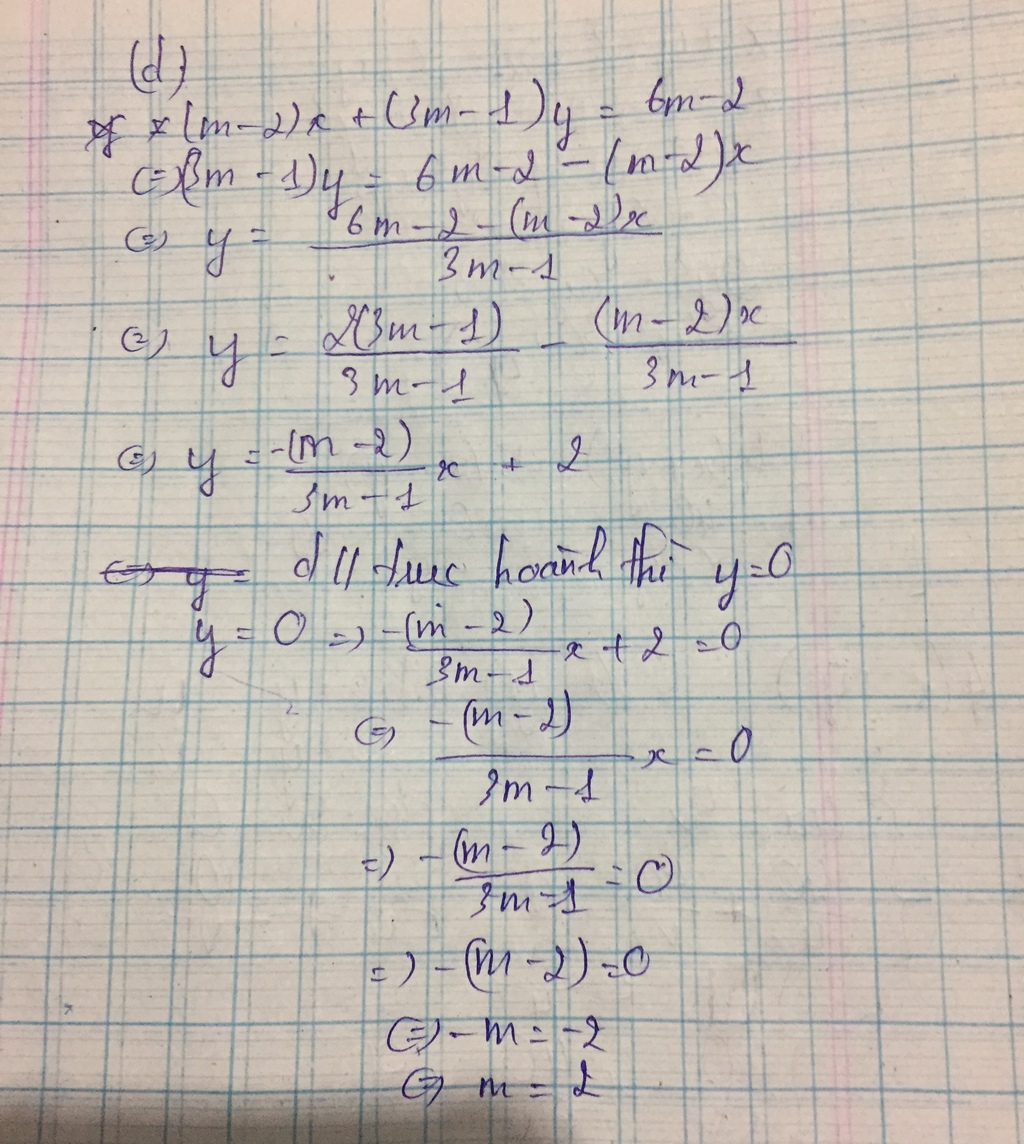 (d)
* (m-2)x + (3m-1)y = 6m-2
(=) (3m-1)y = 6m-2 - (m-2)x
(=) y = \frac{6m-2-(m-2)x}{3m-1}
(=) y = \frac{2(3m-1)}{3m-1} - \frac{(m-2)x}{3m-1}
(=) y = \frac{-(m-2)}{3m-1}x + 2
d // trục hoành thì y=0
y = 0 =) \frac{-(m-2)}{3m-1}x + 2 = 0
(=) \frac{-(m-2)}{3m-1}x = 0
=) -\frac{(m-2)}{3m-1} = 0
=) -(m-2) = 0
(=) -m = -2
(=) m = 2